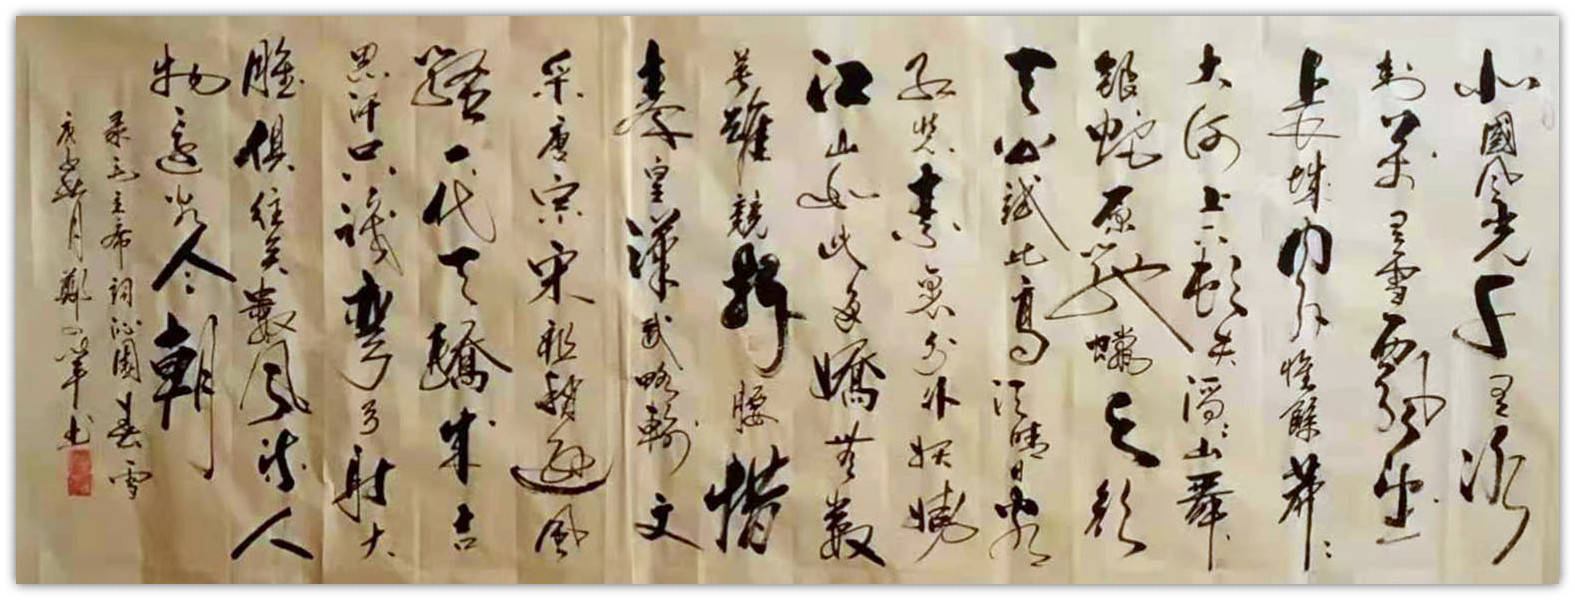 北國風光千里冰
封萬里雪飄望
長城內外惟餘莽〻
大河上下頓失滔〻山舞
銀蛇原馳蠟象欲
天公試比高須晴日看
紅裝素裹分外妖嬈
江山如此多嬌無數
英雄競折腰惜
秦皇漢武略輸文
采唐宗宋祖稍遜風
騷一代天驕成吉
思汗只識彎弓射大
雕俱往矣數風流人
物還看今朝
录毛主席詞沁園春雪
庚月鄭书